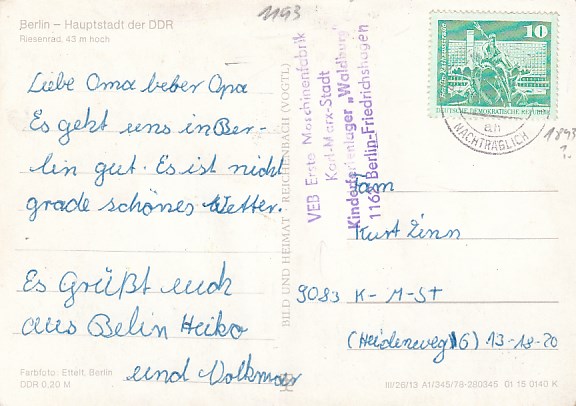 Berlin – Hauptstadt der DDR
Riesenrad, 43 m hoch
1193
Liebe Oma beber Opa
Es geht uns in Ber-
lin gut. Es ist nicht
grade schönes Wetter.
Es Grüßt euch
aus Belin Heiko
und Volkmar
Farbfoto: Ettelt, Berlin
DDR 0,20 M
BILD UND HEIMAT REICHENBACH (VOGTL)
VEB Erste Maschinenfabrik
Karl-Marx-Stadt
Kinderferienlager „Waldburg"
1162 Berlin-Friedrichshagen
10
Berlin, Rathausstraße
DEUTSCHE DEMOKRATISCHE REPUBLIK
NACHTRÄGLICH
1893
?.
Fam
Kurt Zinn
9083 K-M-ST
(Heideweg 16) 13-18-20
III/26/13 A1/345/78-280345 01 15 0140 K